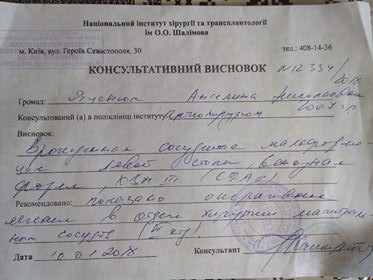 Національний інститут хірургії та трансплантології
ім О.О. Шалімова
м. Київ, вул. Героїв Севастополя, 30 тел.: 408-14-36
КОНСУЛЬТАТИВНИЙ ВИСНОВОК N12334/2018
Громад: Ангелина Николаевна
Консультований (а) в поліклініці інституту ангиохирургом 2007 г.р.
Висновок:
Врожденное сосудистая мальформа-
ция левой стопы, венозная
форма, КВН III (СЕАР)
Рекомендовано: показано оперативное
лечение в отдел хирургии магистраль-
ных сосудов (II эт)
Дата 10.01.2018 Консультант